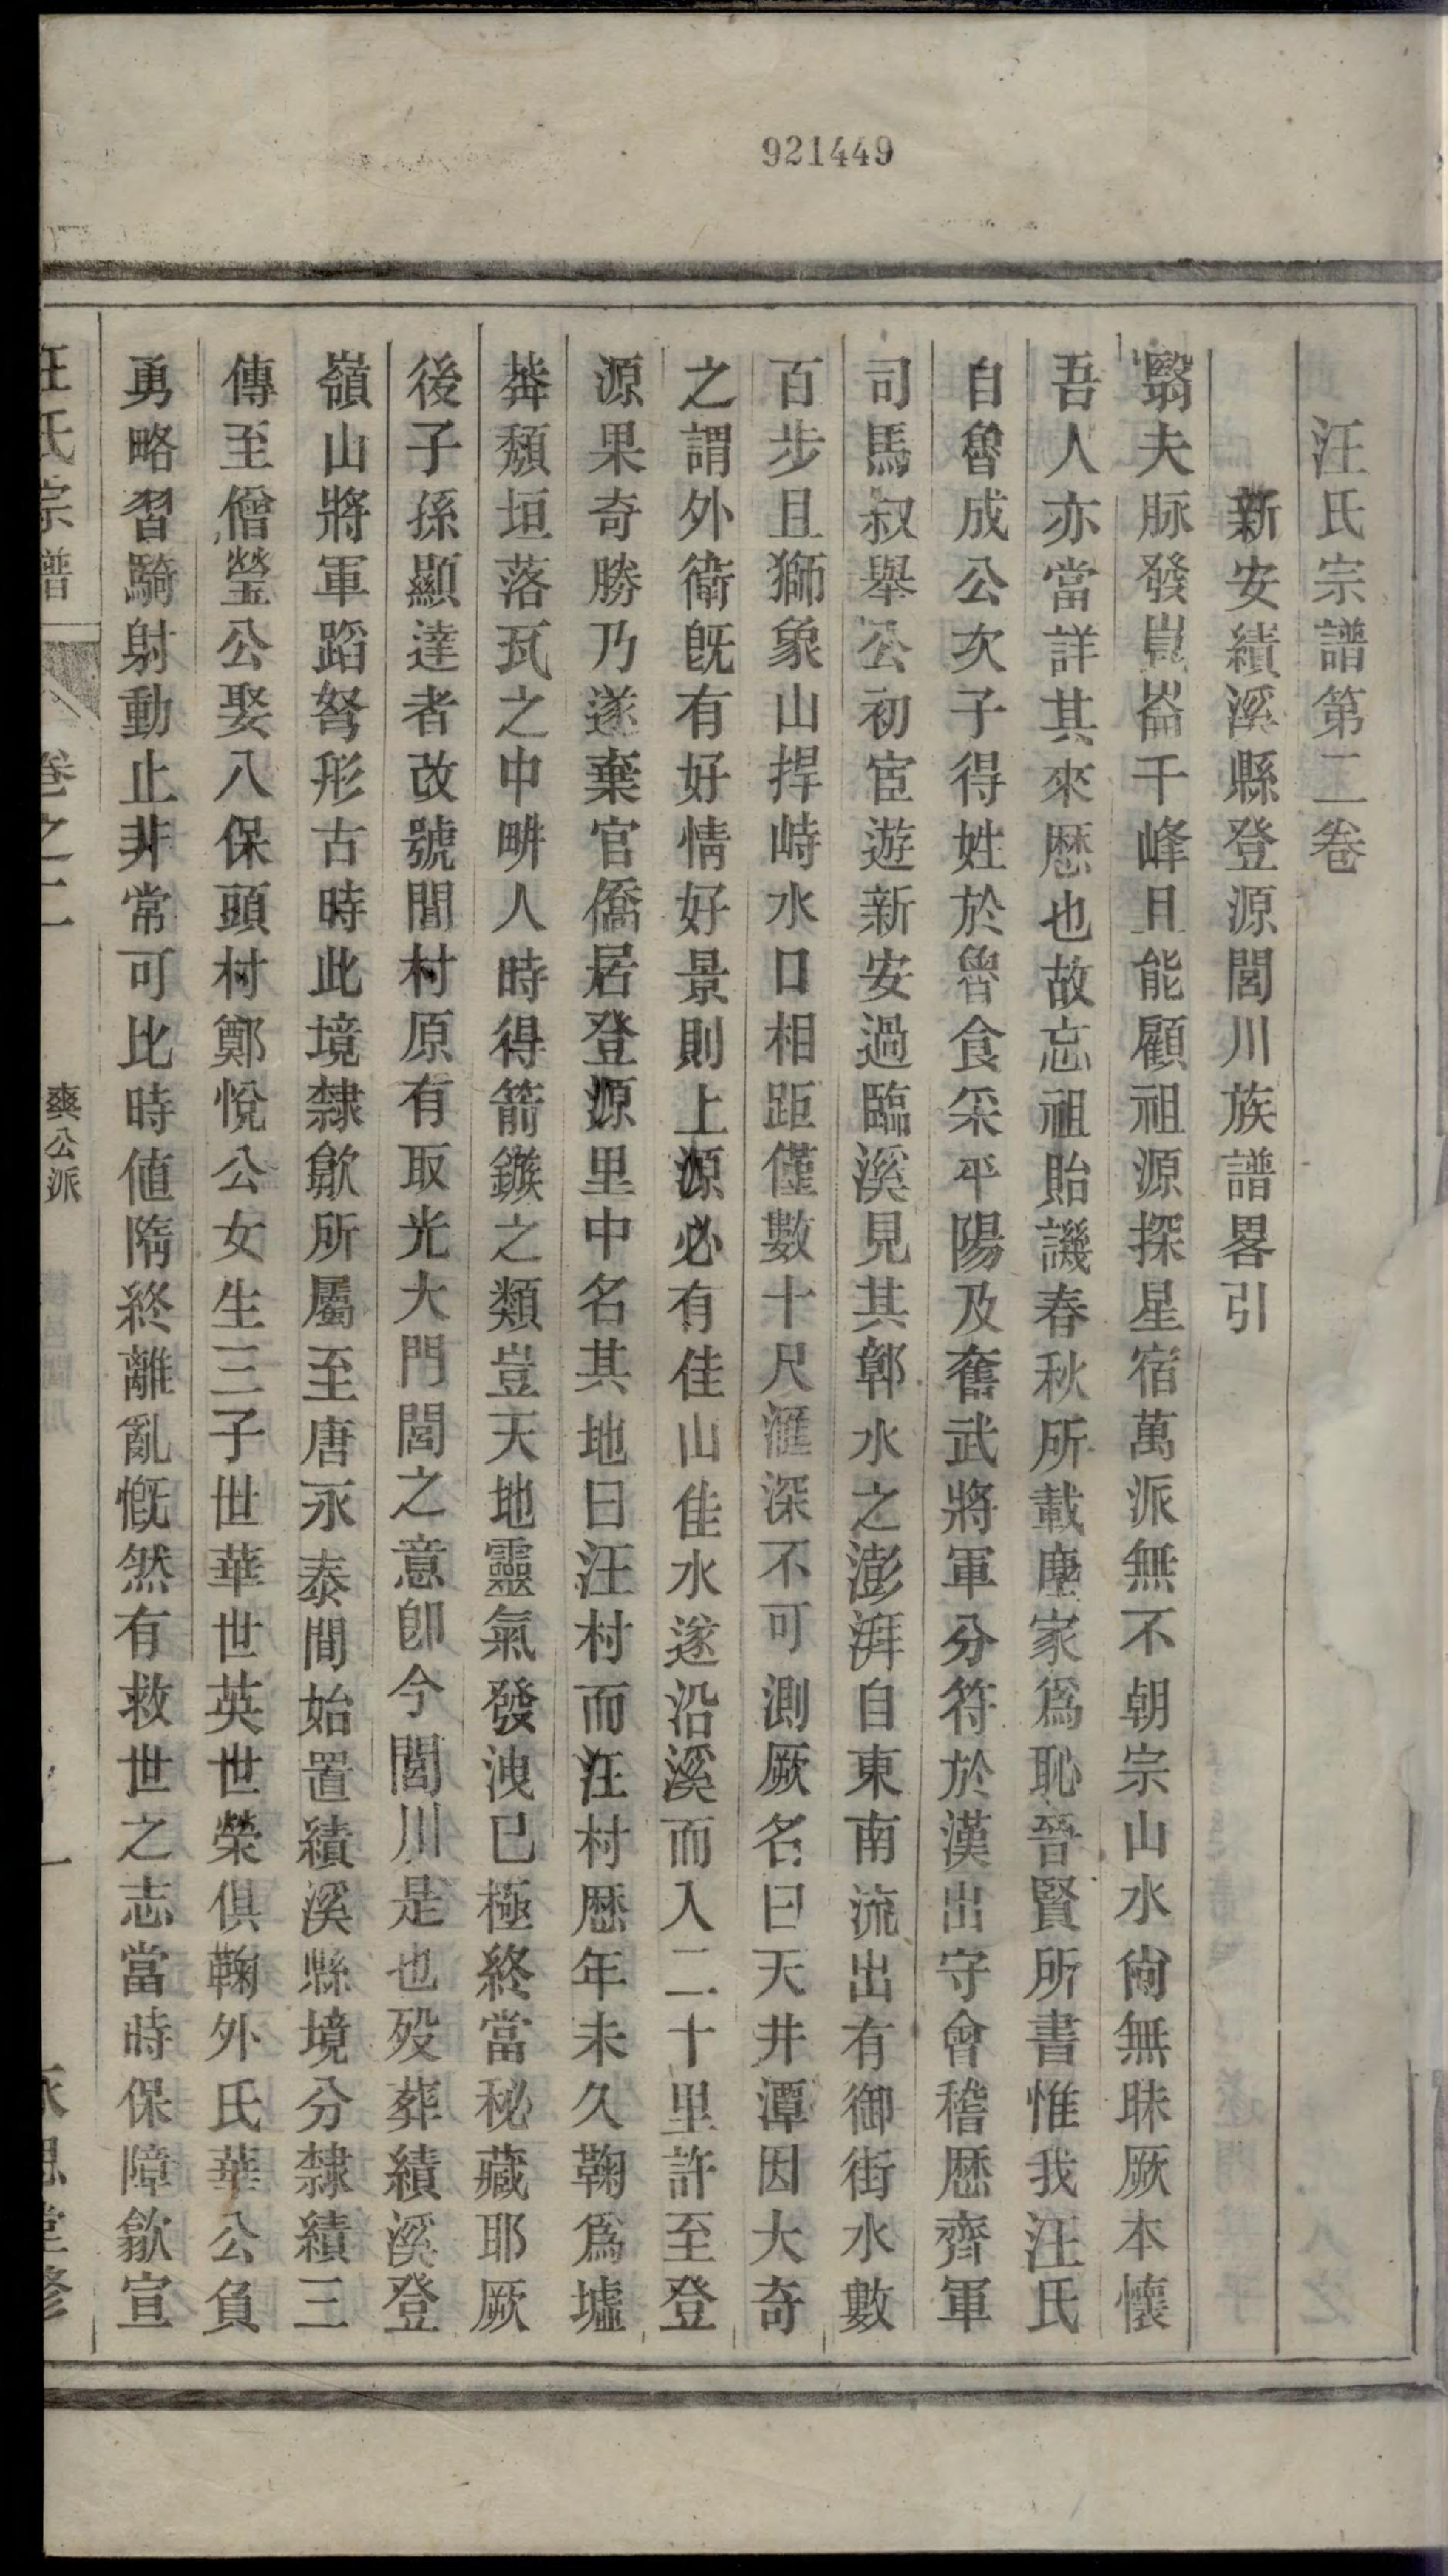 921449
汪氏宗譜第二卷
新安績溪縣登源閭川族譜畧引
翳夫脉發崑崙千峰且能顧祖源探星宿萬派無不朝宗山水尙無昧厥本懷
吾人亦當詳其來厯也故忘祖貽譏春秋所載塵家爲恥晉賢所書惟我汪氏
自魯成公次子得姓於魯食采平陽及奮武將軍分符於漢出守會稽厯齊軍
司馬叔舉公初宦遊新安過臨溪見其鄣水之澎湃自東南流出有御街水數
百步且獅象山捍峙水口相距僅數十尺滙深不可測厥名曰天井潭因大奇
之謂外衛旣有好情好景則上源必有佳山佳水遂沿溪而入二十里許至登
源果奇勝乃遂棄官僑居登源里中名其地曰汪村而汪村厯年未久鞠爲墟
莽頽垣落瓦之中畊人時得箭鏃之類豈天地靈氣發洩已極終當秘藏耶厥
後子孫顯達者改號閭村原有取光大門閭之意卽今閭川是也殁葬績溪登
嶺山將軍蹈弩形古時此境隸歙所屬至唐永泰間始置績溪縣境分隸績三
傳至僧瑩公娶八保頭村鄭悅公女生三子世華世英世榮俱鞠外氏華公負
勇略習騎射動止非常可比時値隋終離亂慨然有救世之志當時保障歙宣
汪氏宗譜 卷之二 爽公派 一